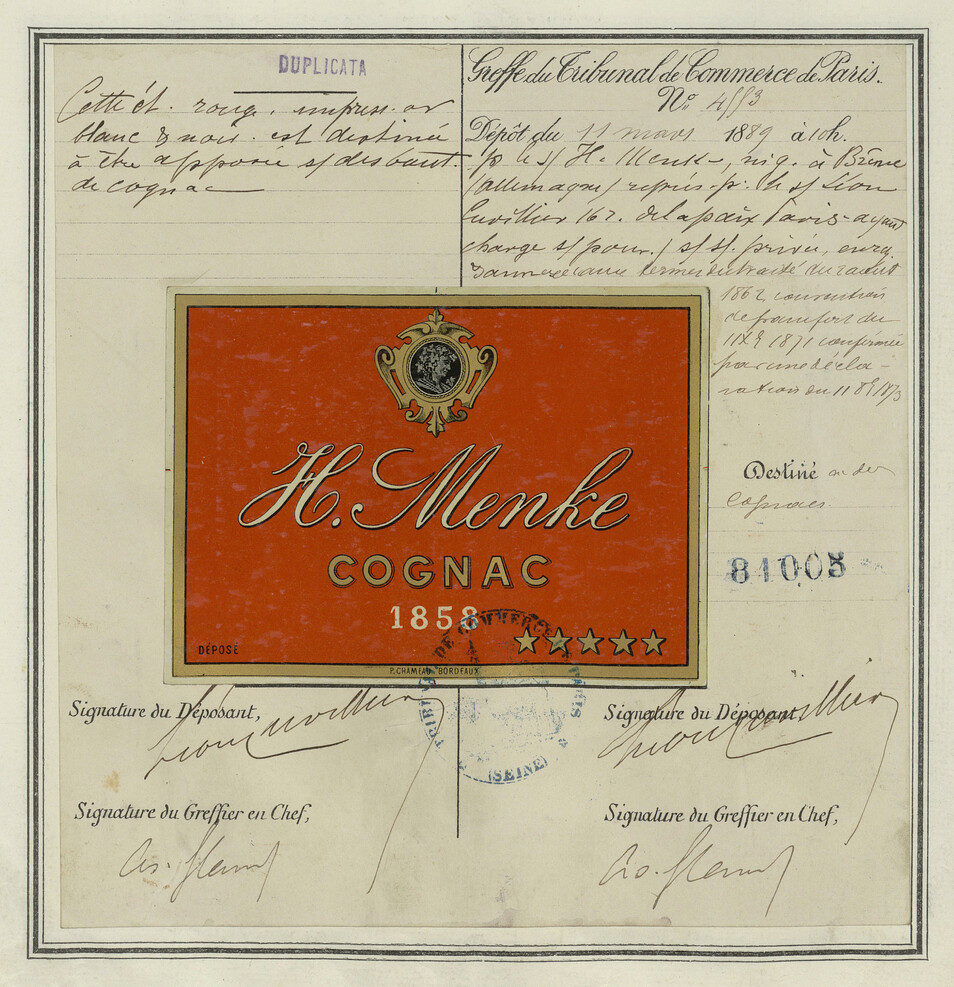 DUPLICATA
Cette ét. rouge. impress. or
blanc & noir. est destinée
à être apposée s/ des bout.
de cognac
Greffe du Tribunal de Commerce de Paris.
No.
Dépôt du 11 mars 1889 à 10h.
p. le s/ H. Menke, nég. à Brême
(allemagne) représ. p. le sr Léon
Cuvillier 16 r. de la paix Paris ayant
charge s/ pouv. s/ privé, enreg.
termes du traité du 2 août
1862 convention
de francfort du
1871 confirmée
par une décla-
ration du 11 8bre 1873
H. Menke
COGNAC
1858
DÉPOSÉ
P. CHAMEAU BORDEAUX
Destiné à des
Cognacs.
81005
TRIBUNAL DE COMMERCE DE PARIS
(SEINE)
Signature du Déposant,
Léon Cuvillier
Signature du Greffier en Chef,
Signature du Déposant,
Léon Cuvillier
Signature du Greffier en Chef,